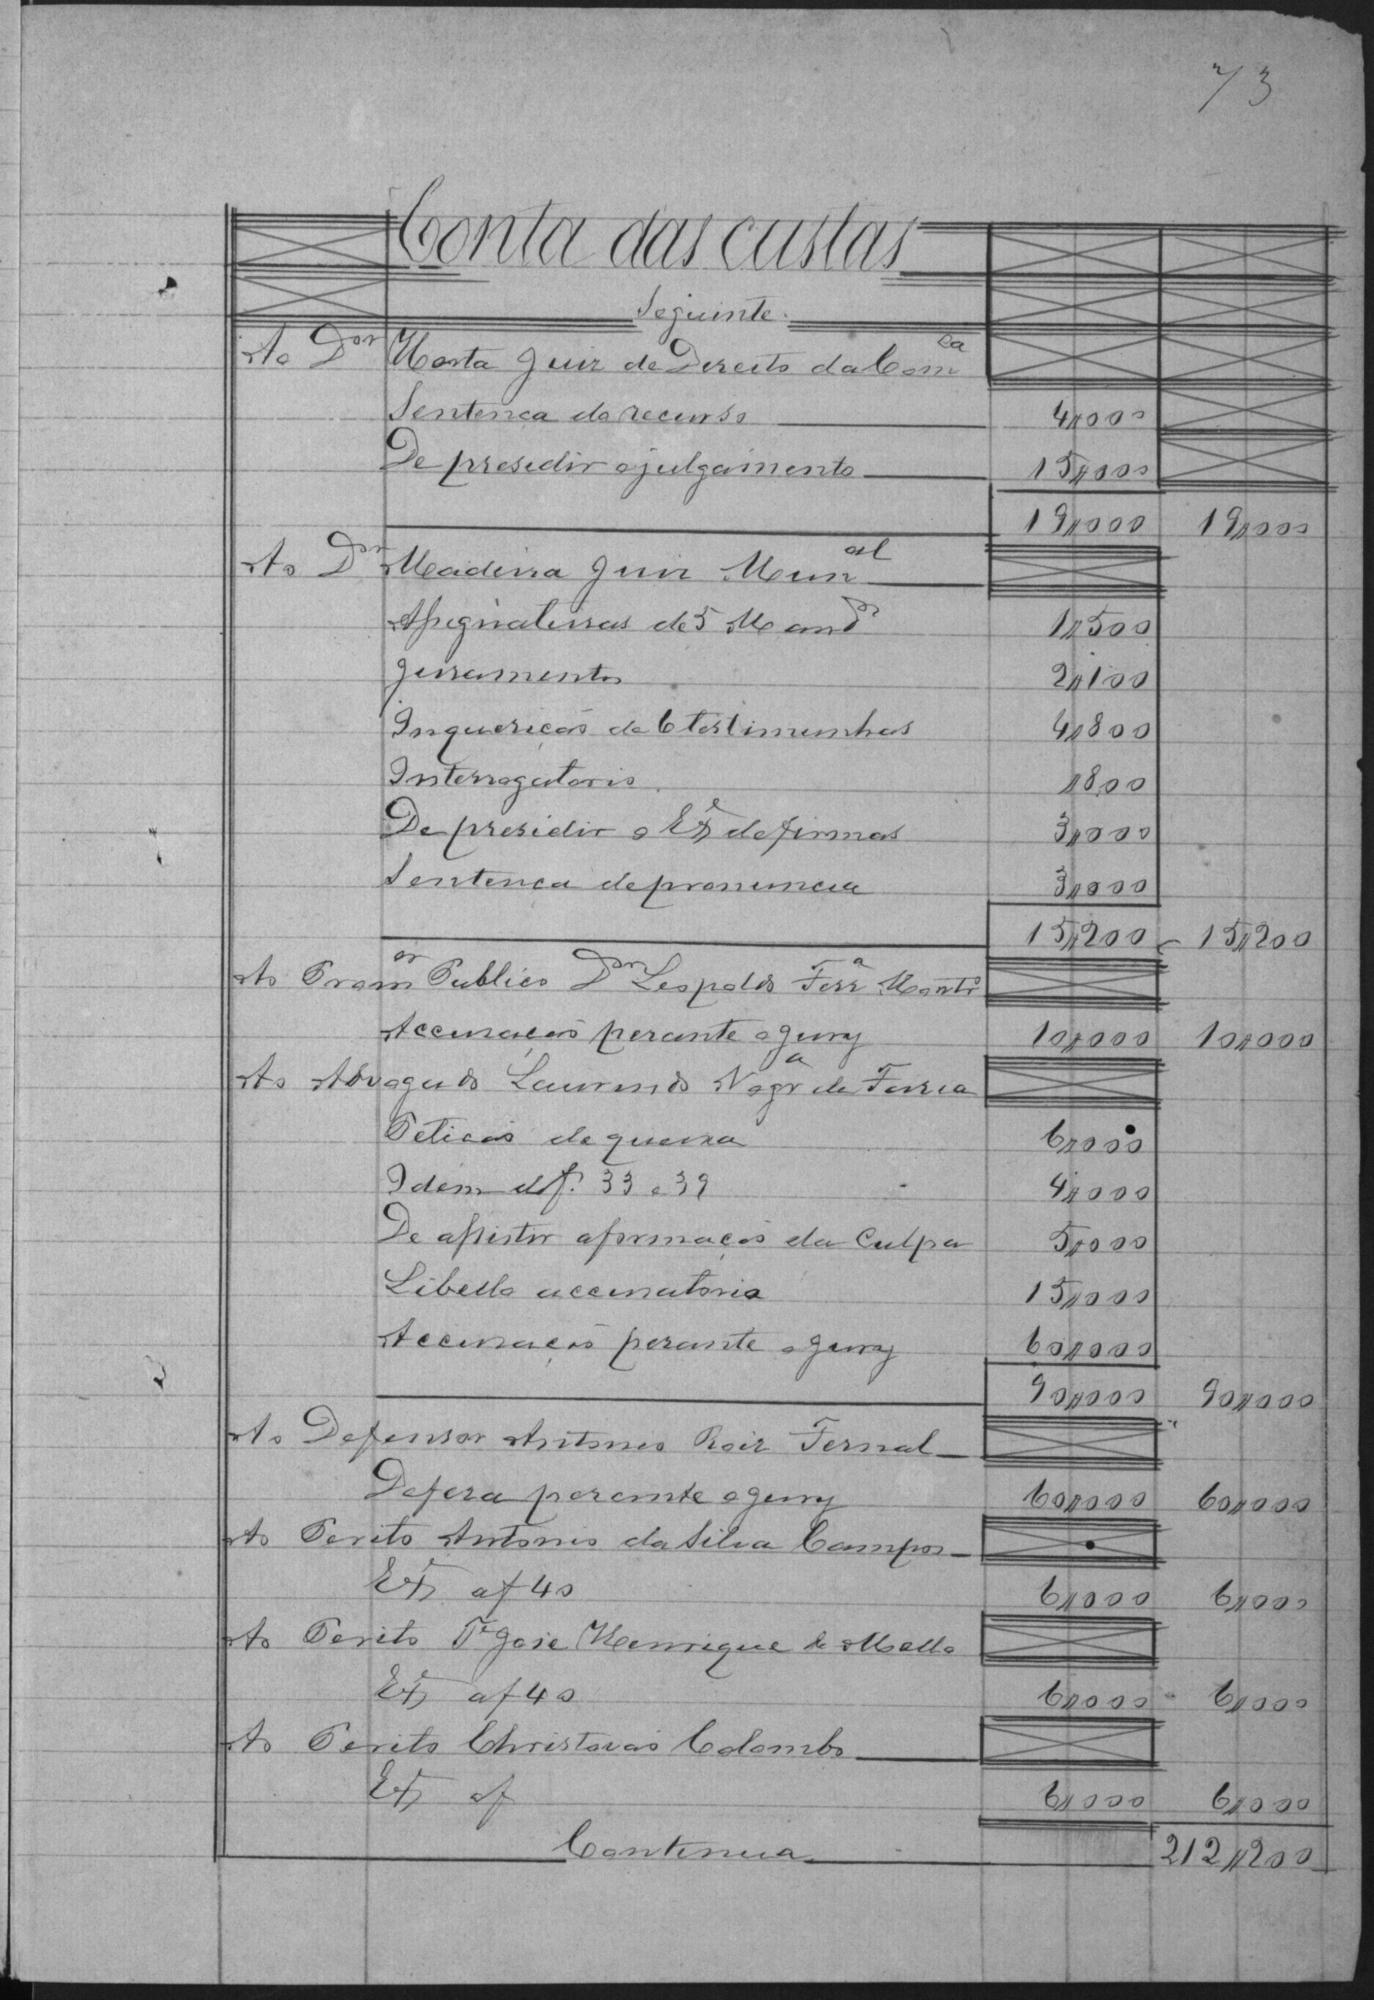 73
Conta das custas
Seguinte.
Ao Dor Horta Juiz de Direito da Comca
Sentença do recurso 4,,000
De presedir o julgamento 15,,000
19,,000 19,,000
Ao Dor Madeira Juiz Munal
Assignaturas de 5 Mandos 1,,500
Juramentos 2,,100
Inquerição de 6 testimunhas 4,,800
Interrogatorio 1800
De presidir o Ex de firmas 3,,000
Sentença de pronuncia 3,,000
15,,200 15,,200
Ao Promor Publico Dor Leopoldo Ferra Montro
Accusação perante o jury 10,,000 10,,000
Ao Advogado Laurindo Nogra de Faria
Petição de queixa 6,,000
Idem de f. 33 e 39 4,,000
De assistir a formação da Culpa 5,,000
Libello accusatorio 15,,000
Accusação perante o jury 60,,000
90,,000 90,,000
Ao Defensor Antonio Roiz Fernal
Defeza perante o jury 60,,000 60,,000
Ao Perito Antonio da Silva Campos
Ex a f 40 6,,000 6,,000
Ao Perito Te José Henrique de Mello
Ex a f 40 6,,000 6,,000
Ao Perito Christovão Colombo
Ex a f 6,,000 6,,000
Continua 212,,200